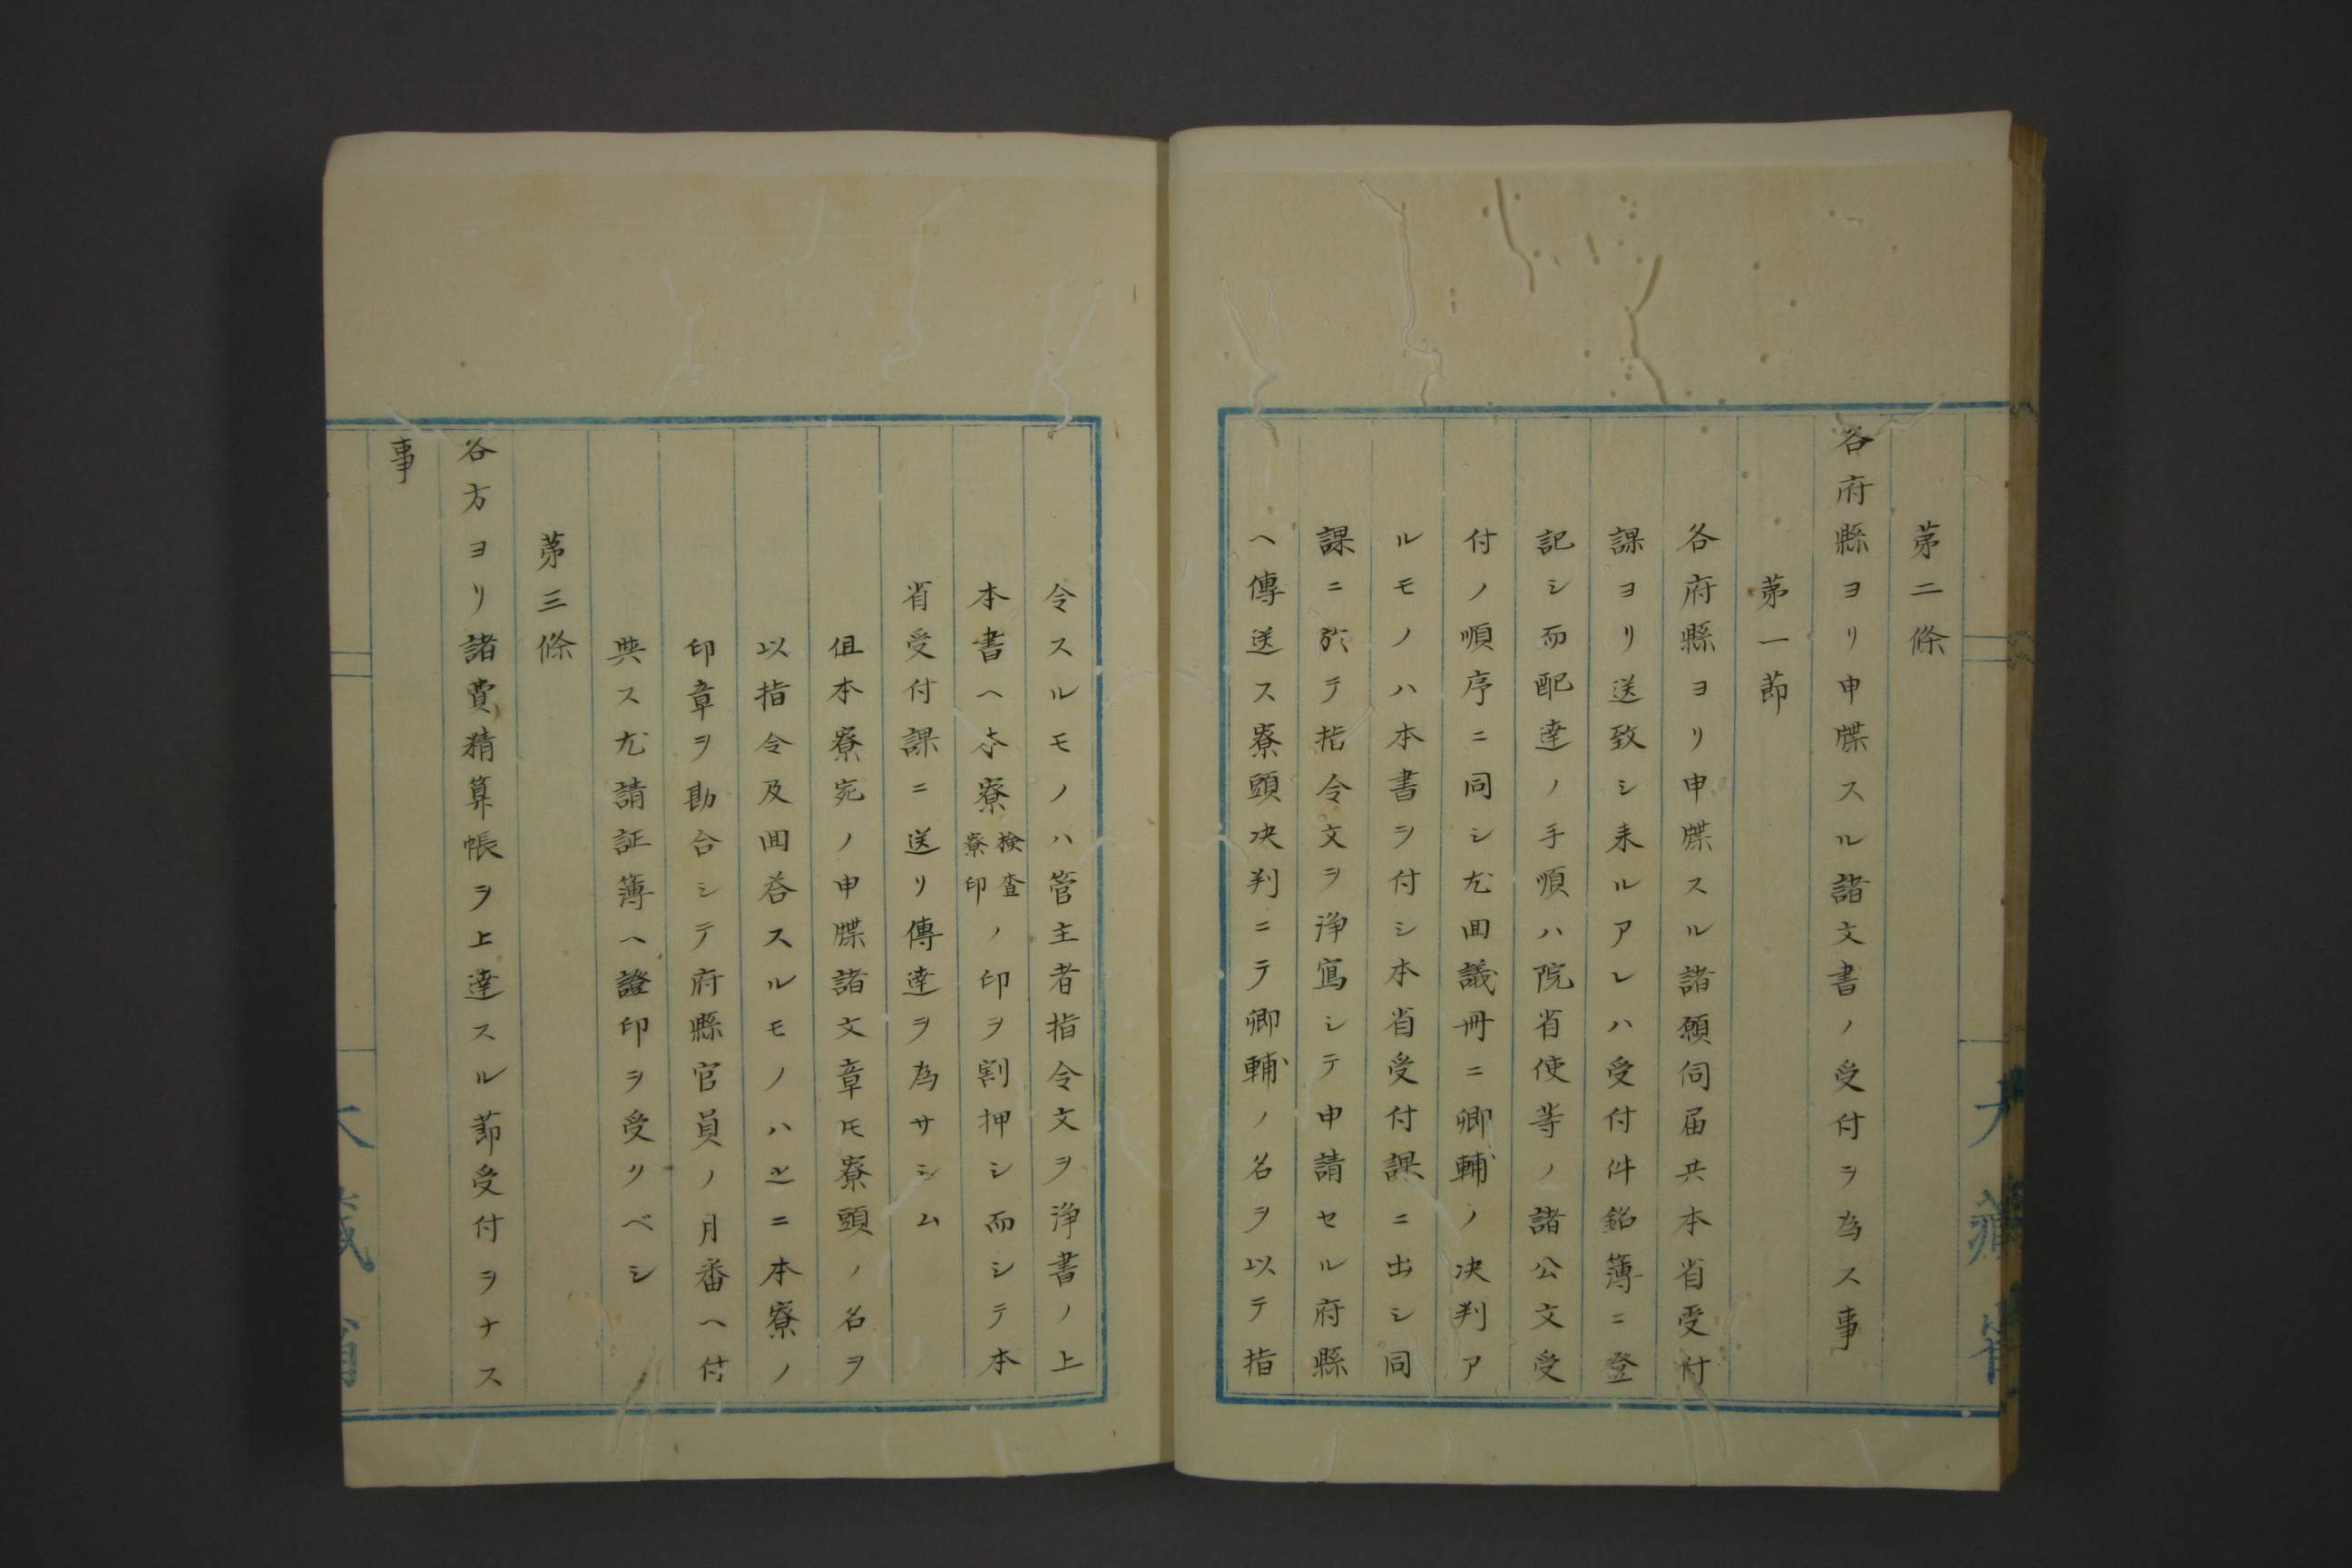 第二條
各府縣ヨリ申牒スル諸文書ノ受付ヲ為ス事
第一節
各府縣ヨリ申牒スル諸願伺届共本省受付
課ヨリ送致シ来ルアレハ受付件銘簿ニ登
記シ而配達ノ手順ハ院省使等ノ諸公文受
付ノ順序ニ同シ尤回議冊ニ卿輔ノ决判ア
ルモノハ本書ヲ付シ本省受付課ニ出シ同
課ニ於テ指令文ヲ淨寫シテ申請セル府縣
ヘ傳送ス寮頭决判ニテ卿輔ノ名ヲ以テ指
令スルモノハ管主者指令文ヲ淨書ノ上
本書ヘ本寮檢査寮印ノ印ヲ割押シ而シテ本
省受付課ニ送リ傳達ヲ為サシム
但本寮宛ノ申牒諸文章モ寮頭ノ名ヲ
以指令及回答スルモノハ之ニ本寮ノ
印章ヲ勘合シテ府縣官員ノ月番ヘ付
與ス尤請証簿ヘ證印ヲ受クベシ
第三條
各方ヨリ諸費精算帳ヲ上達スル節受付ヲナス
事
大藏省
大藏省